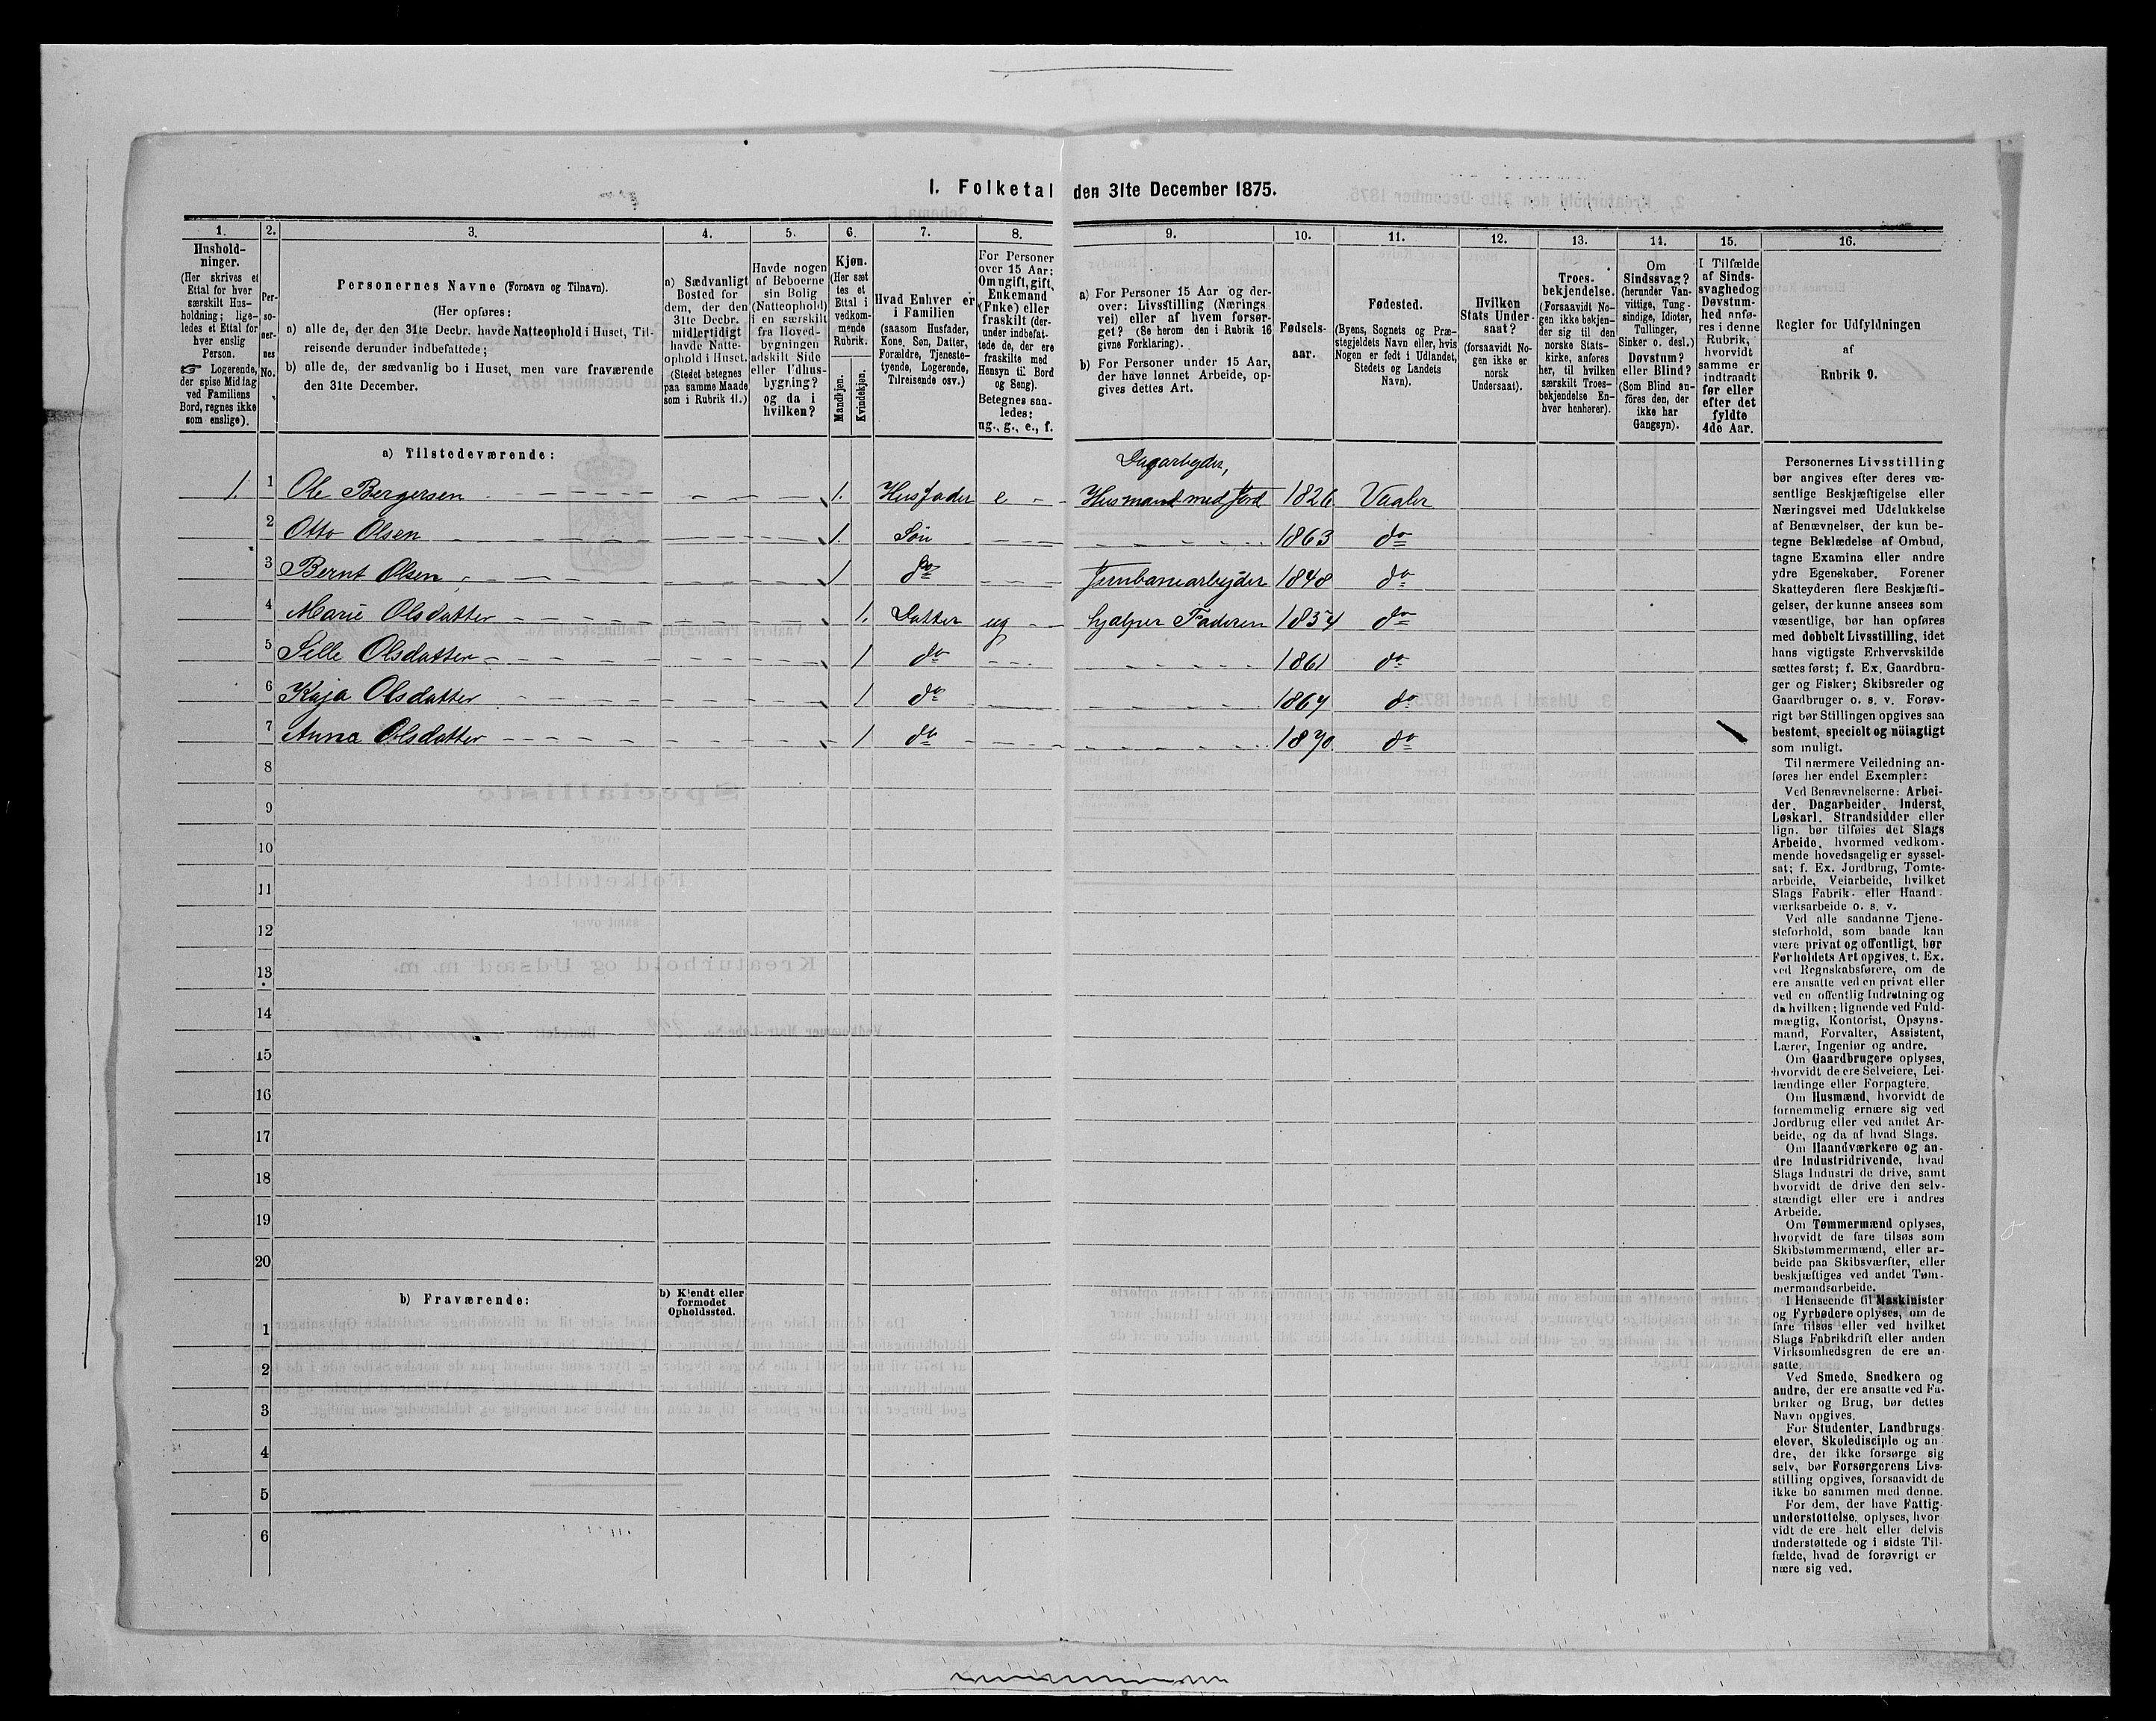 I. Folketal den 31te December 1875.
1. 2. 3. 4. 5. 6. 7. 8. 9. 10. 11. 12. 13. 14. 15. 16.
Hushold-
ninger.
(Her skrives et
Ettal for hver
særskilt Hus-
holdning; lige-
ledes et Ettal for
hver enslig
Person.
☞ Logerende,
der spise Middag
ved Familiens
Bord, regnes ikke
som enslige).
Per-
so-
ner-
nes
No.
Personernes Navne (Fornavn og Tilnavn).
(Her opføres:
a) alle de, der den 31te Decbr. havde Natteophold i Huset, Til-
reisende derunder indbefattede;
b) alle de, der sædvanlig bo i Huset, men vare fraværende
den 31te December.
a) Sædvanligt
Bosted for
dem, der den
31te Decbr.
midlertidigt
havde Natte-
ophold i Huset.
(Stedet betegnes
paa samme Maade
som i Rubrik 11.)
Havde nogen
af Beboerne
sin Bolig
(Natteophold)
i en særskilt
fra Hoved-
bygningen
adskilt Side
eller Udhus-
bygning?
og da i
hvilken?
Kjøn.
(Her sæt
tes et
Ettal i
vedkom-
mende
Rubrik.
Mandkjøn.
Kvindekjøn.
Hvad Enhver er
i Familien
(saasom Husfader,
Kone, Søn, Datter,
Forældre, Tjeneste-
tyende, Logerende,
Tilreisende osv.)
For Personer
over 15 Aar:
Om ugift, gift,
Enkemand
(Enke) eller
fraskilt (der-
under indbefat-
tede de, der ere
fraskilte med
Hensyn til Bord
og Seng).
Betegnes saa-
ledes:
ug., g., e., f.
a) For Personer 15 Aar og der-
over: Livsstilling (Nærings
vei) eller af hvem forsør-
get? (Se herom den i Rubrik 16
givne Forklaring).
b) For Personer under 15 Aar,
der have lønnet Arbeide, op-
gives dettes Art.
Fødsels-
aar.
Fødested.
(Byens, Sognets og Præ-
stegjeldets Navn eller, hvis
Nogen er født i Udlandet,
Stedets og Landets
Navn).
Hvilken
Stats Under-
saat?
(forsaavidt No-
gen ikke er
norsk
Undersaat).
Troes-
bekjendelse.
(Forsaavidt No-
gen ikke bekjen-
der sig til den
norske Stats-
kirke, anføres
her, til hvilken
særskilt Troes-
bekjendelse En-
hver henhører).
Om
Sindssvag?
(herunder Van-
vittige, Tung-
sindige, Idioter,
Tullinger,
Sinker o. desl.)
Døvstum?
eller Blind?
(Som Blind an-
føres den, der
ikke har
Gangsyn).
I Tilfælde
af Sinds-
svaghed og
Døvstum-
hed anfø-
res i denne
Rubrik,
hvorvidt
samme er
indtraadt
før eller
efter det
fyldte
4de Aar.
Regler for Udfyldningen
af
Rubrik 9.
a) Tilstedeværende:
Dagarbejder,
1. 1 Ole Bergersen 1. Husfader e Husmand med Jord 1826 Vaaler
2 Otto Olsen 1. Søn 1863 do
3 Bernt Olsen 1 do Jernbanearbejder 1848 do
4 Marie Olsdatter 1. Datter ug hjælper Faderen 1854 do
5 Olsdatter 1 do 1861 do
6 Kaja Olsdatter 1 do 1867 do
7 Anna Olsdatter 1 do 1870 do
8
9
10
11
12
13
14
15
16
17
18
19
20
b) Fraværende:
b) Kjendt eller
formodet
Opholdssted.
1
2
3
4
5
6
Personernes Livsstilling
bør angives efter deres væ-
sentlige Beskjæftigelse eller
Næringsvei med Udelukkelse
af Benævnelser, der kun be-
tegne Beklædelse af Ombud,
tagne Examina eller andre
ydre Egenskaber. Forener
Skatteyderen flere Beskjæfti-
gelser, der kunne ansees som
væsentlige, bør han opføres
med dobbelt Livsstilling, idet
hans vigtigste Erhvervskilde
sættes først; f. Ex. Gaardbru-
ger og Fisker; Skibsreder og
Gaardbruger o. s. v. Forøv-
rigt bør Stillingen opgives saa
bestemt, specielt og nöiagtigt
som muligt.
Til nærmere Veiledning an-
føres her endel Exempler:
Ved Benævnelserne: Arbei-
der, Dagarbeider, Inderst,
Løskarl, Strandsidder eller
lign. bør tilføies det Slags
Arbeide, hvormed vedkom-
mende hovedsagelig er syssel-
sat; f. Ex. Jordbrug, Tomte-
arbeide, Veiarbeide, hvilket
Slags Fabrik- eller Haand-
værksarbeide o. s. v.
Ved alle saadanne Tjene-
steforhold, som baade kan
være privat og offentligt, bør
Forholdets Art opgives, f. Ex.
ved Regnskabsførere, om de
ere ansatte ved en privat eller
ved en offentlig Indretning og
da hvilken; lignende ved Fuld-
mægtig, Kontorist, Opsyns-
mand, Forvalter, Assistent,
Lærer, Ingeniør og andre.
Om Gaardbrugere oplyses,
hvorvidt de ere Selveiere, Lei-
lændinge eller Forpagtere.
Om Husmænd, hvorvidt de
fornemmelig ernære sig ved
Jordbrug eller ved andet Ar-
beide, og da af hvad Slags.
Om Haandværkere og an-
dre Industridrivende, hvad
Slags Industri de drive, samt
hvorvidt de drive den selv-
stændigt eller ere i andres
Arbeide.
Om Tømmermænd oplyses,
hvorvidt de fare tilsøs som
Skibstømmermænd, eller ar-
beide paa Skibsværfter, eller
beskjæftiges ved andet Tøm-
mermandsarbeide.
I Henseende til Maskinister
og Fyrbødere oplyses, om de
fare tilsøs eller ved hvilket
Slags Fabrikdrift eller anden
Virksomhedsgren de ere an-
satte.
Ved Smede, Snedkere og
andre, der ere ansatte ved Fa-
briker og Brug, bør dettes
Navn opgives.
For Studenter, Landbrugs-
elever, Skoledisciple og an-
dre, der ikke forsørge sig
selv, bør Forsørgerens Livs-
stilling opgives, forsaavidt de
ikke bo sammen med denne.
For dem, der have Fattig-
understøttelse, oplyses, hvor-
vidt de ere helt eller delvis
understøttede og i sidste Til-
fælde, hvad de forøvrigt er
nære sig ved.